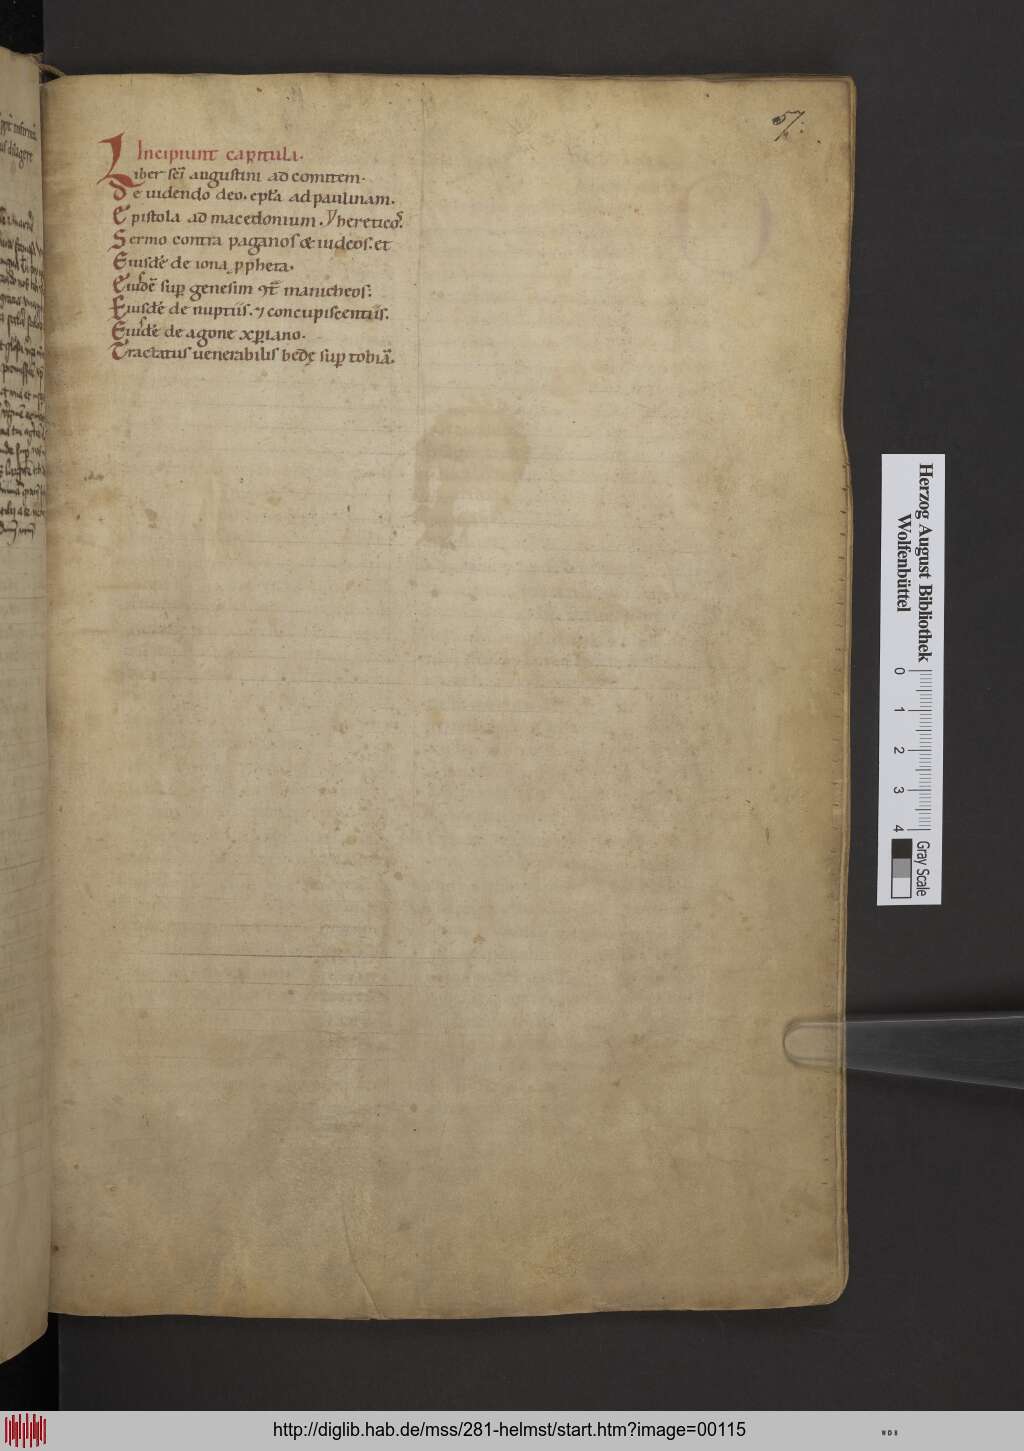 57.
Incipiunt capitula.
Liber sci̅ augustini ad comitem.
De uidendo deo. ept̅a ad paulinam.
Epistola ad macedonium. hereticos.
Sermo contra paganos & iudeos. et
Eiusdē de iona ꝓpheta.
Eiusdē sup genesim ꝯt̅ manicheos.
Eiusdē de nuptiis. ⁊ concupiscentiis.
Eiusdē de agone xp̅iano.
Tractatus uenerabilis bedę sup tobiā.
Herzog August Bibliothek
Wolfenbüttel
0 1 2 3 4
Gray Scale
http://diglib.hab.de/mss/281-helmst/start.htm?image=00115